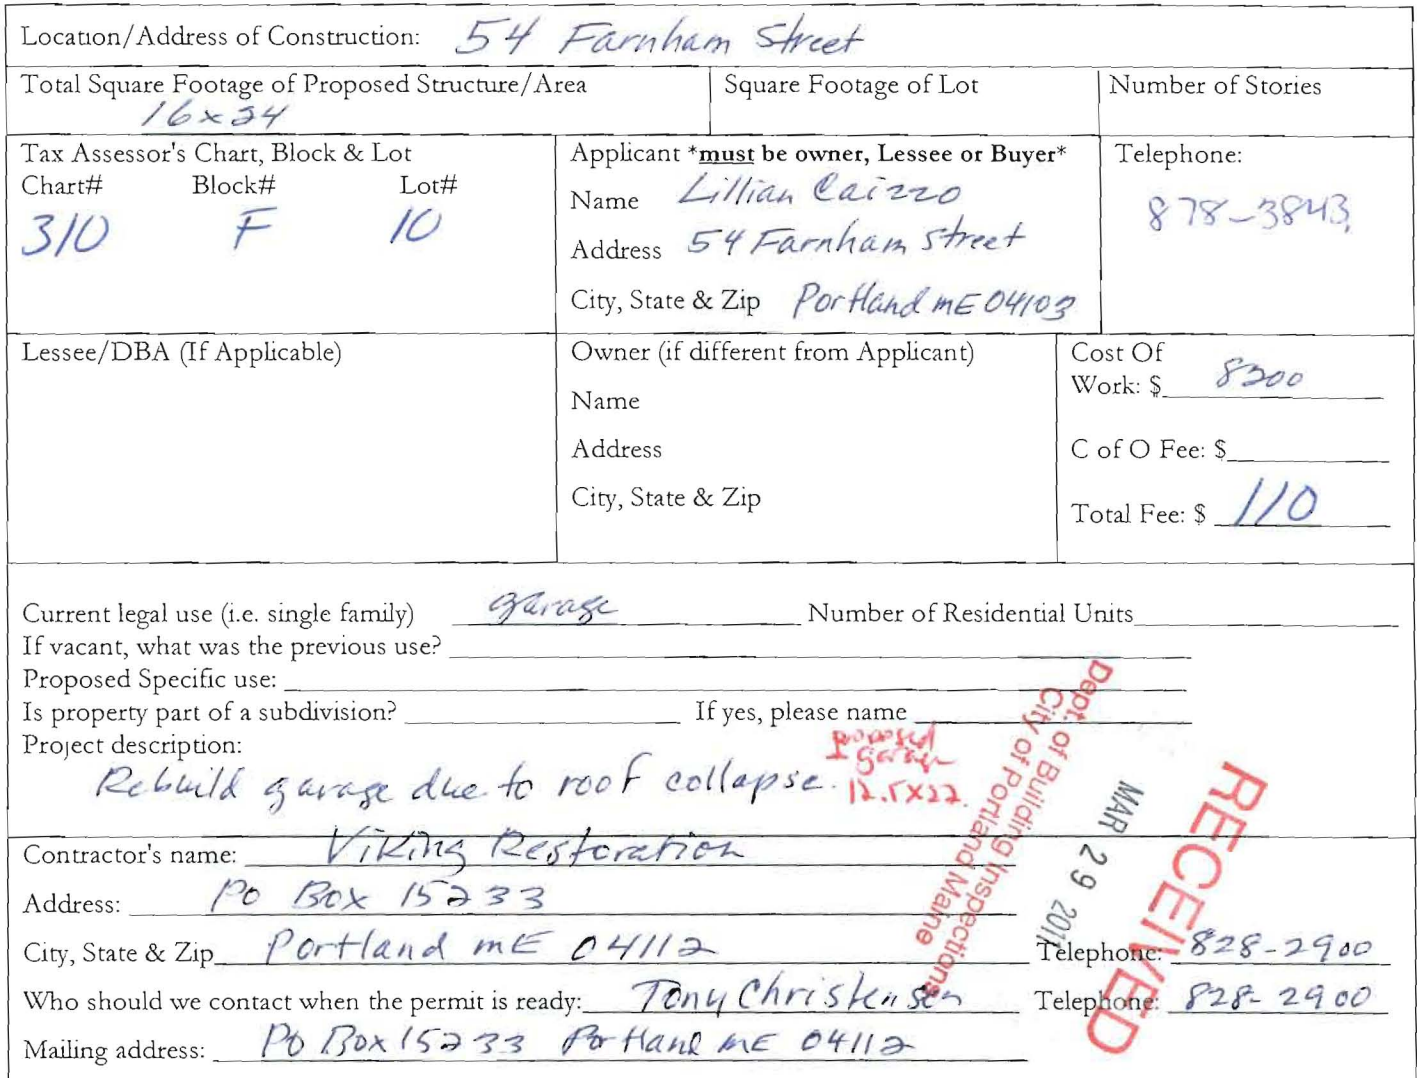 Location/Address of Construction: 54 Farnham Street
Total Square Footage of Proposed Structure/Area
16x24
Square Footage of Lot
Number of Stories
Tax Assessor's Chart, Block & Lot
Chart# Block# Lot#
310 F 10
Applicant *must be owner, Lessee or Buyer*
Name Lillian Caizzo
Address 54 Farnham street
City, State & Zip Portland mE 04103
Telephone:
878-3843
Lessee/DBA (If Applicable)
Owner (if different from Applicant)
Name
Address
City, State & Zip
Cost Of
Work: $ 8200
C of O Fee: $
Total Fee: $ 110
Current legal use (i.e. single family) garage Number of Residential Units
If vacant, what was the previous use?
Proposed Specific use:
Is property part of a subdivision? If yes, please name
Project description:
Rebuild garage due to roof collapse.
proposed
garage
12.5x22
RECEIVED
MAR 29 2011
Dept. of Building Inspections
City of Portland Maine
Contractor's name: Viking Restoration
Address: PO Box 15233
City, State & Zip Portland mE 04112 Telephone: 828-2900
Who should we contact when the permit is ready: Tony Christensen Telephone: 828-2900
Mailing address: PO Box 15233 Portland mE 04112